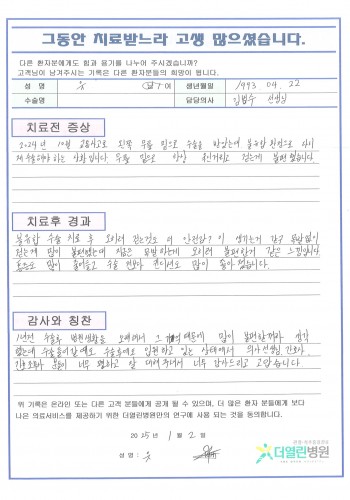 그동안 치료받느라 고생 많으셨습니다.
다른 환자분에게도 힘과 용기를 나누어 주시겠습니까?
고객님이 남겨주시는 기록은 다른 환자분들의 희망이 됩니다.
성 명 생년월일 1993. 04. 22
수술명 담당의사 김범수 선생님
치료전 증상
2024년 10월 교통사고로 왼쪽 무릎 밑으로 수술을 받았는데 불유합 진단으로 다시
재수술해야 하는 상황입니다. 무릎 밑으로 항상 걷는게 불편했습니다.
치료후 경과
불유합 수술 치료 후 오히려 걷는것도 더 안전감? 이 생기는거 같구 목발없이
걷는게 많이 불편했는데 지금은 목발 하는게 오히려 불편한거 같은 느낌입니다.
통증도 많이 줄어들고 수술 전보다 컨디션도 많이 좋아졌습니다.
감사와 칭찬
1년전 수술후 병원생활을 오래해서 그 기억때문에 많이 불편할꺼라 생각
했는데 수술들어갈때도 수술후에도 입원하고 있는 상태에서 의사선생님, 간호사,
간호조무사 분들이 너무 멸하고 잘 대해주셔서 너무 감사드리고 고맙습니다.
위 기록은 온라인 또는 다른 고객 분들에게 공개 될 수 있으며, 더 많은 환자 분들에게 보다
나은 의료서비스를 제공하기 위한 더열린병원만의 연구에 사용 되는 것을 동의합니다.
2025년 1월 2일
성명 :
더열린병원